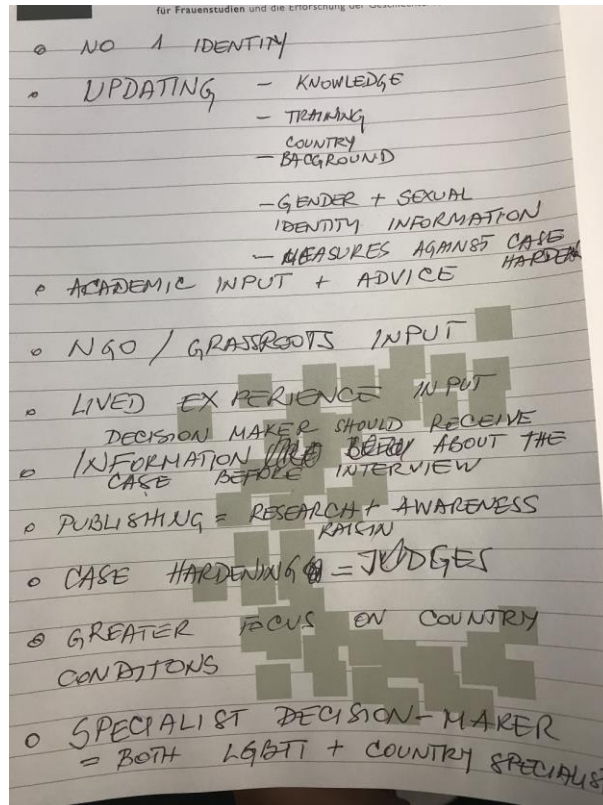 für Frauenstudien und die Erforschung der
NO 1 IDENTITY
UPDATING - KNOWLEDGE
- TRAINING
COUNTRY
- BACGROUND
- GENDER + SEXUAL
IDENTITY INFORMATION
- MEASURES AGAINST CASE
HARDEN
ACADEMIC INPUT + ADVICE
NGO / GRASSROOTS INPUT
LIVED EXPERIENCE INPUT
DECISION MAKER SHOULD RECEIVE
INFORMATION ABOUT THE
CASE BEFORE INTERVIEW
PUBLISHING = RESEARCH + AWARENESS
RAISIN
CASE HARDENING = JUDGES
GREATER FOCUS ON COUNTRY
CONDITIONS
SPECIALIST DECISION-MAKER
= BOTH LGBTI + COUNTRY SPECIALIS